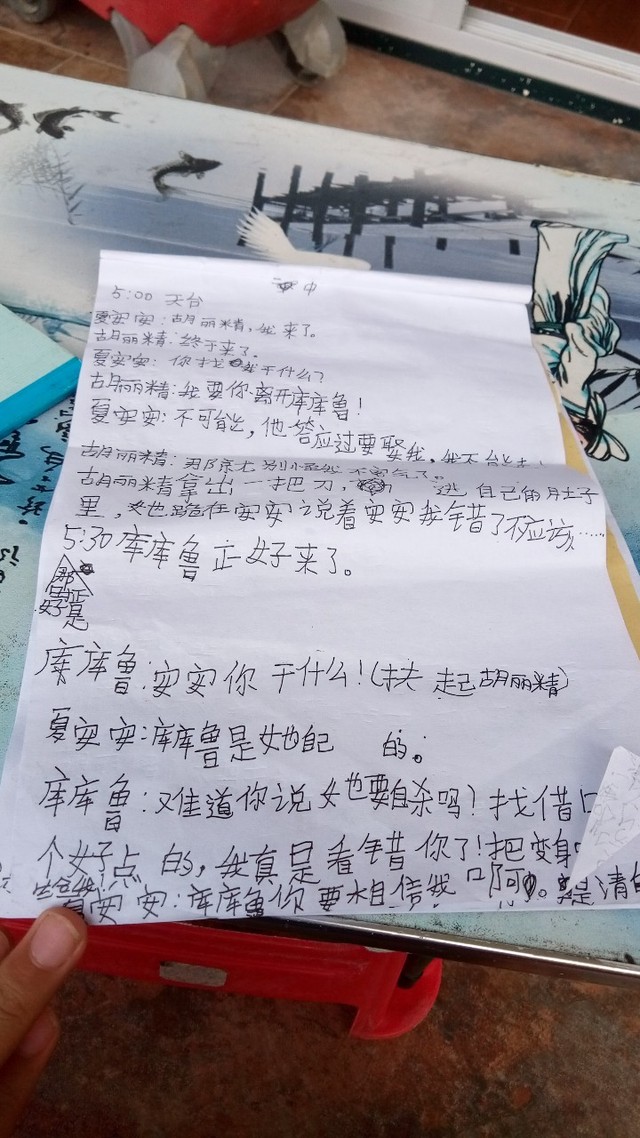 5:00 天台
夏安安:胡丽精,我来了。
胡丽精:终于来了。
夏安安:你找我干什么?
胡丽精:我要你离开库库鲁!
夏安安:不可能,他答应过要娶我,我不能走!
胡丽精:那就别怪我不客气了。
胡丽精拿出一把刀, 进自己的肚子
里,她跪在安安说着安安我错了不应该……
5:30库库鲁正好来了。
库库鲁:安安你干什么!(扶起胡丽精)
夏安安:库库鲁是她自己 的。
库库鲁:难道你说她要自杀吗?找借口
个好点的,我真是看错你了!把变身
夏安安:库库鲁你要相信我啊。 是清白